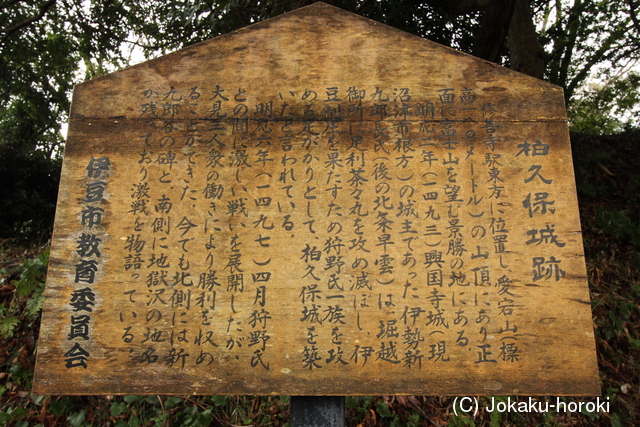 柏久保城跡
修善寺駅東方に位置し、愛宕山(標
高 メートル)の山頂にあり正
面に富士山を望む景勝の地にある。
明応二年(一四九三)興国寺城(現
沼津市根方)の城主であった伊勢新
九郎長氏(後の北条早雲)は、堀越
御所・足利茶々丸を攻め滅ぼし、伊
豆制圧を果たすため狩野氏一族を攻
める足がかりとして、柏久保城を築
いたと言われている。
明応六年(一四九七)四月狩野氏
との間に激しい戦いを展開したが、
大見三人衆の働きにより勝利を収め
ることができた。今でも北側には新
九郎谷の碑と、南側に地獄沢の地名
が残っており激戦を物語っている。
伊豆市教育委員会
(C) Jokaku-horoki